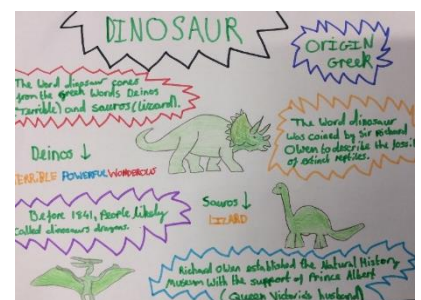 DINOSAUR
ORIGIN
Greek
The word dinosaur comes
from the Greek words Deinos
"terrible) and sauros (lizard).
The word dinosaur
was coined by Sir Richard
Owen to describe the fossil
of extinct reptiles.
Deinos ↓
TERRIBLE POWERFUL WONDEROUS
Sauros ↓
LIZARD
Before 1841, People likely
called dinosaurs dragons.
Richard Owen established the Natural History
Museum with the support of Prince Albert
(Queen Victoria's husband)